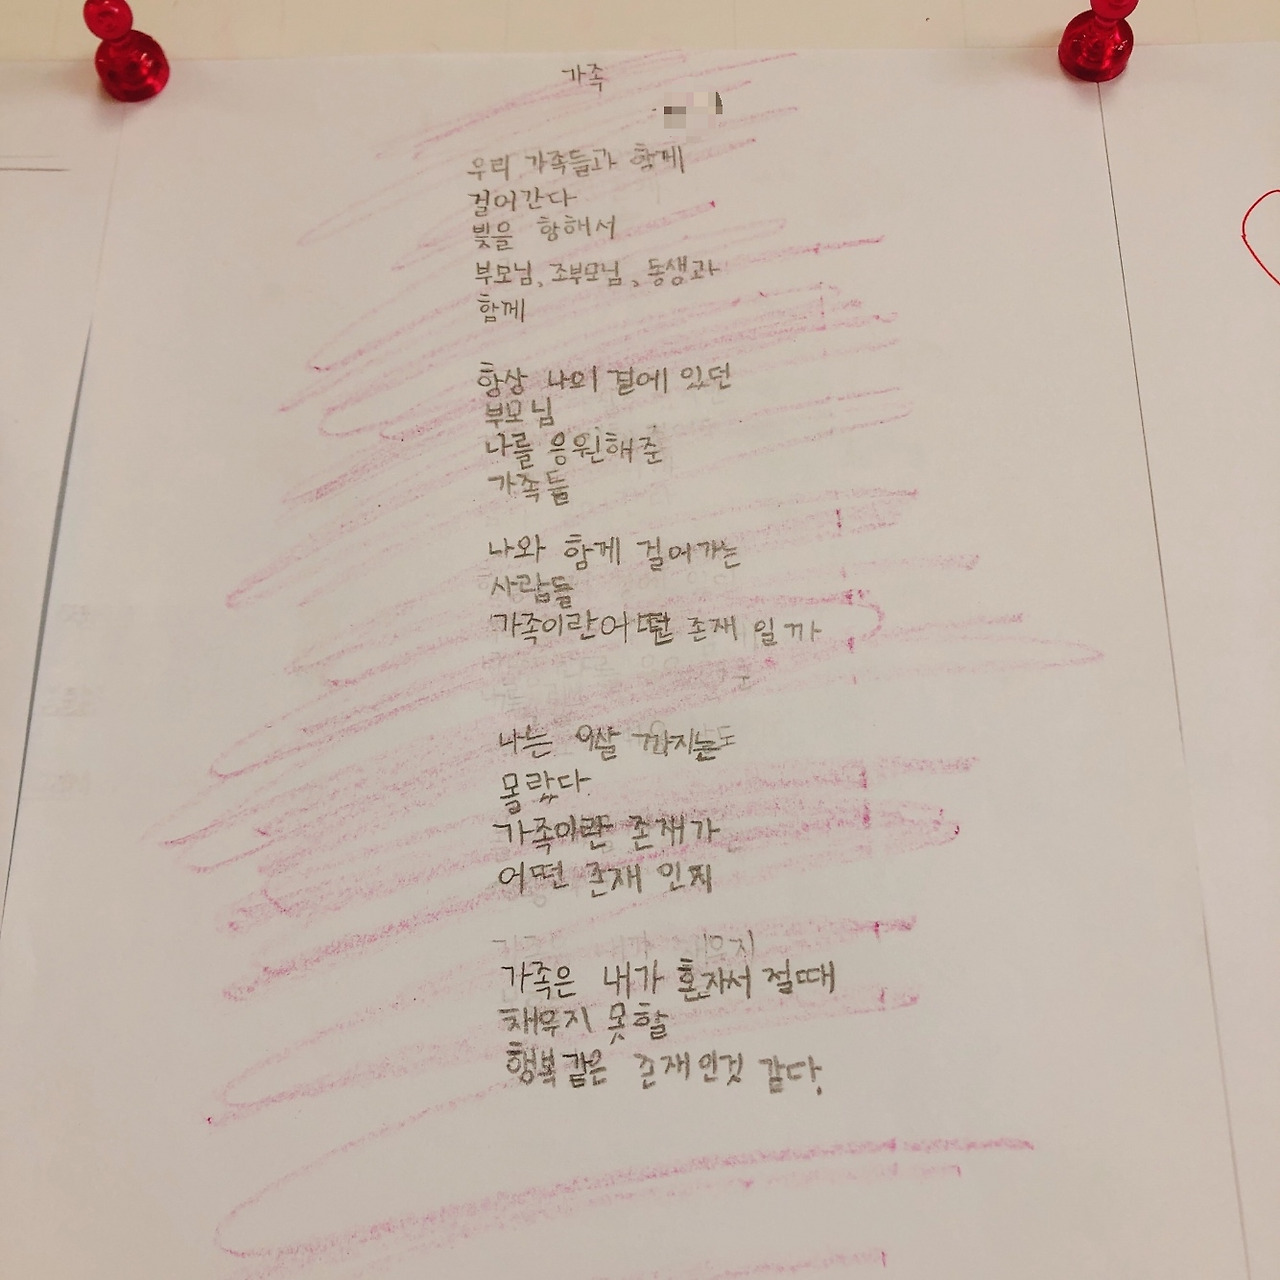 가족
우리 가족들과 함께
걸어간다
빛을 향해서
부모님, 조부모님, 동생과
함께
항상 나의 곁에 있던
부모님
나를 응원해준
가족들
나와 함께 걸어가는
사람들
가족이란 어떤 존재 일까
나는 9살 까지는도
몰랐다.
가족이란 존재가
어떤 존재 인지
가족은 내가 혼자서 절때
채우지 못할
행복같은 존재인것 같다.